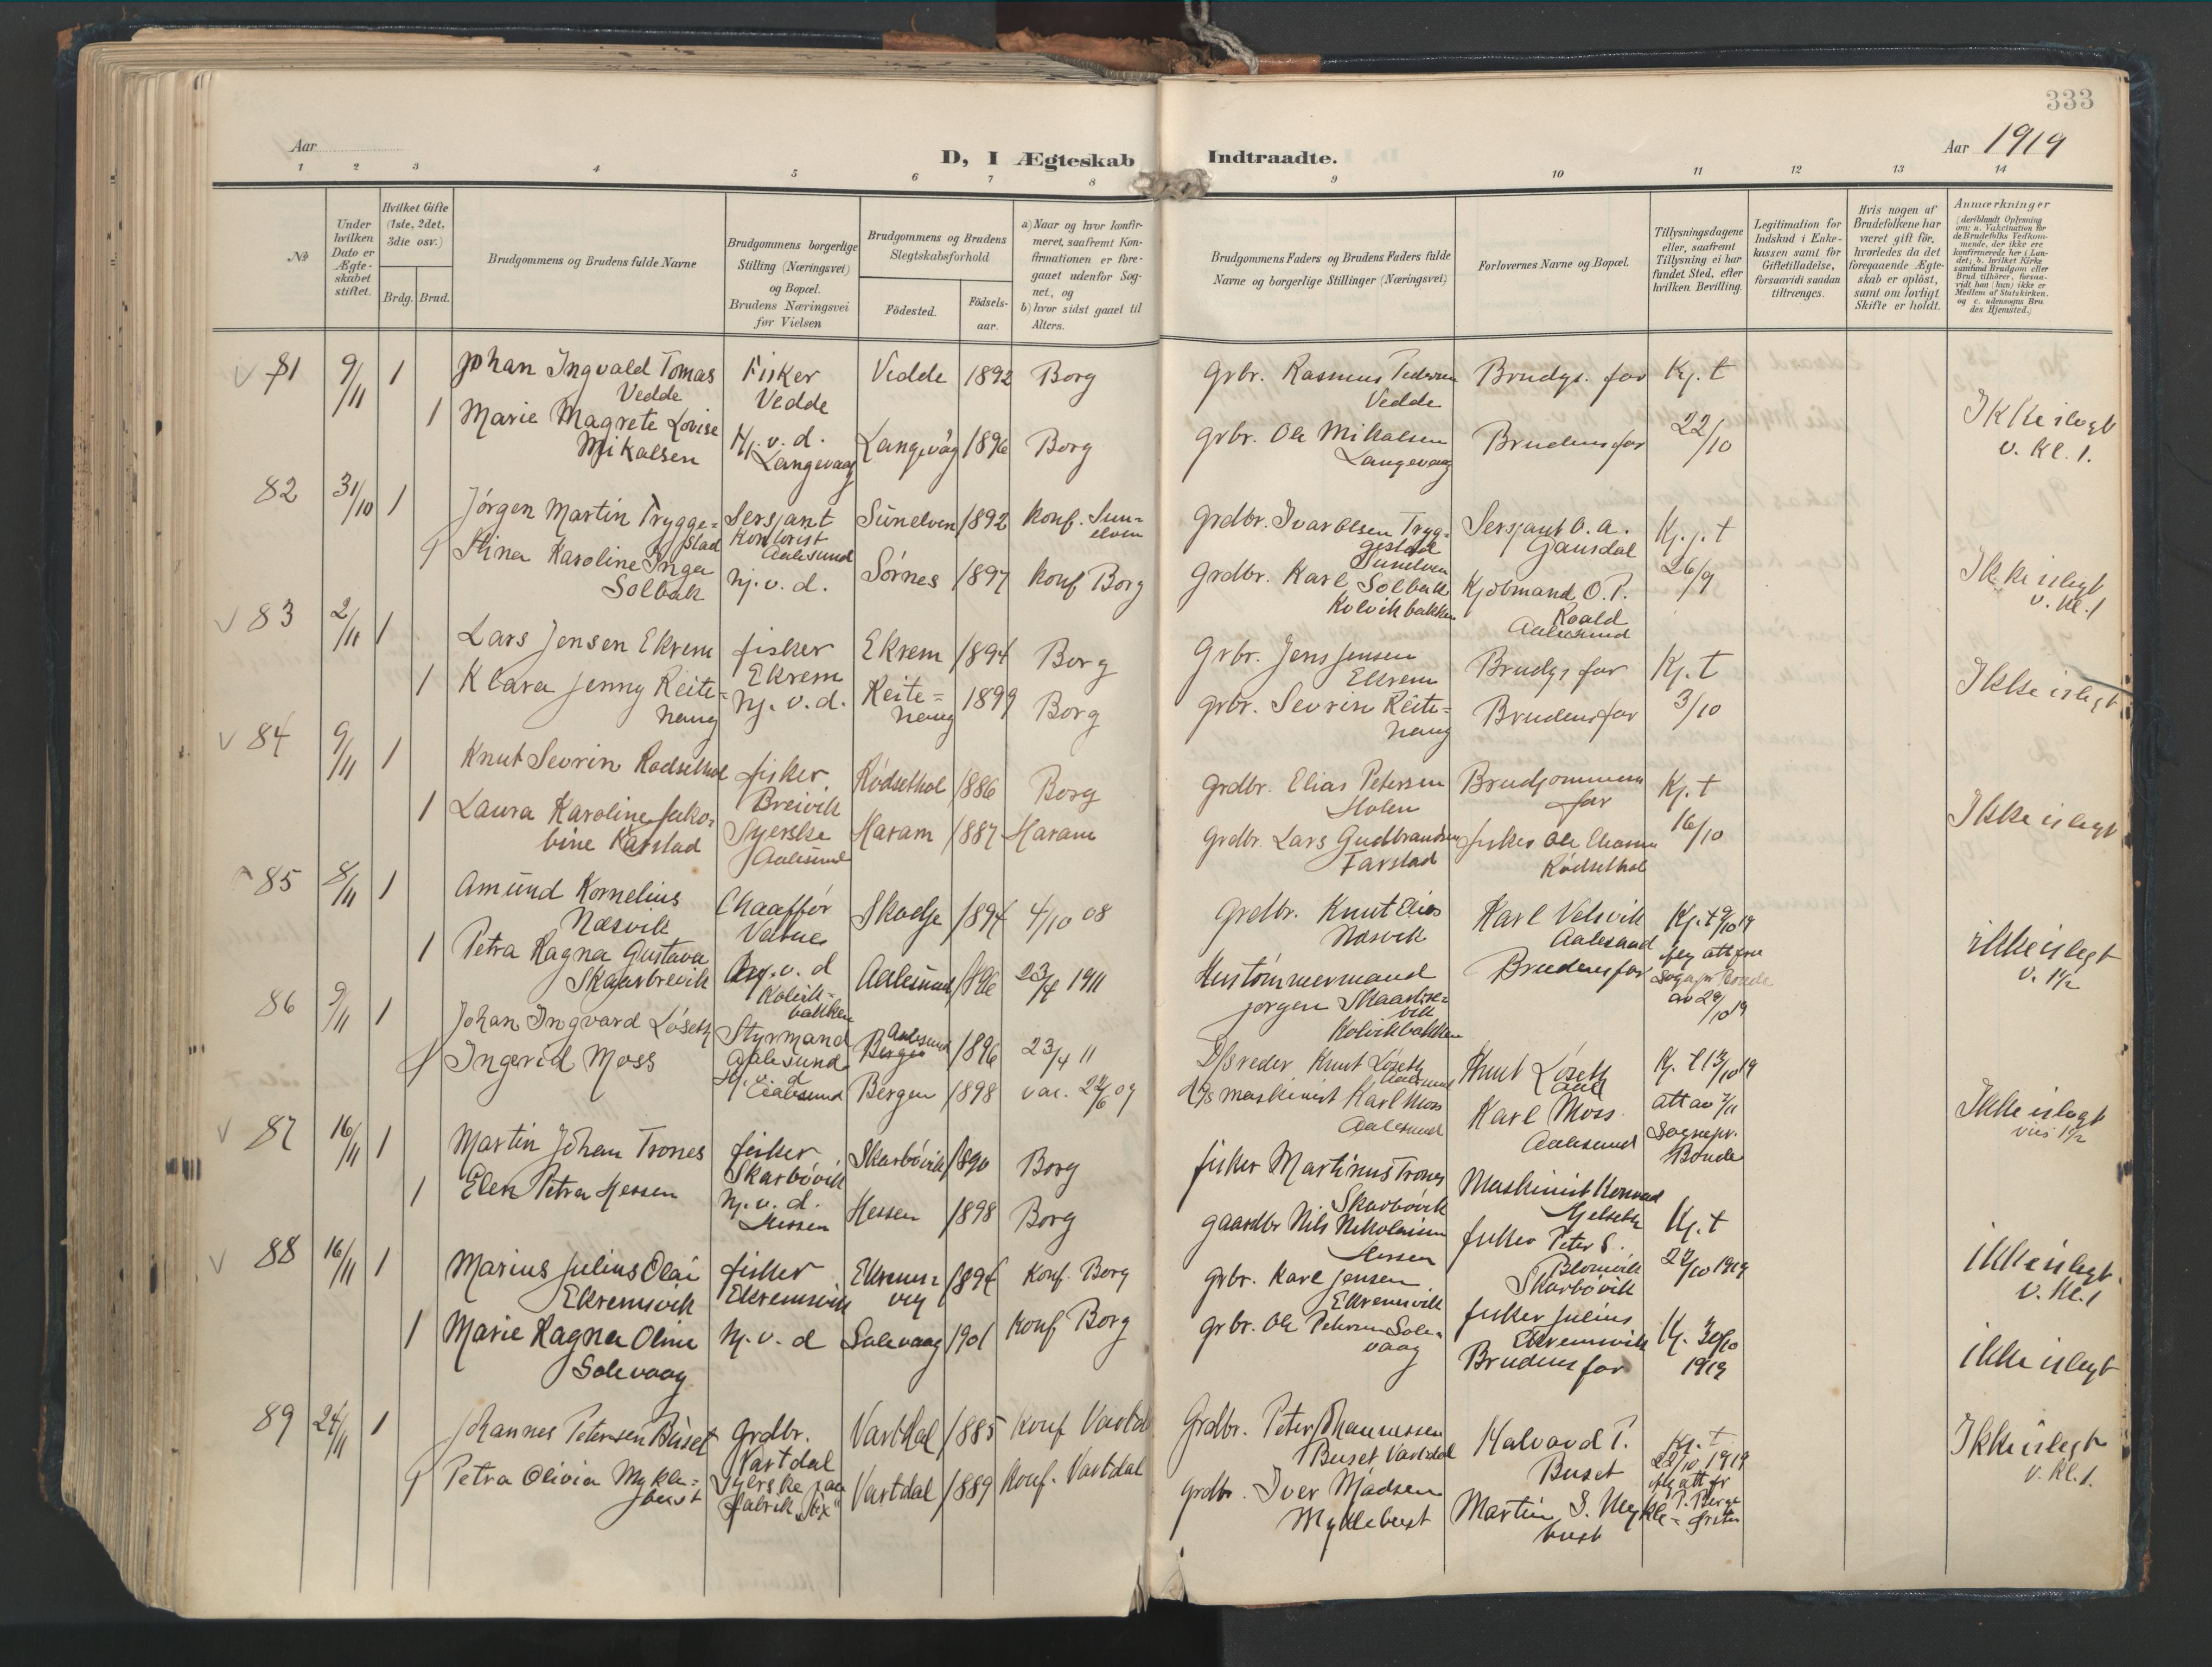 333
Aar
Aar 1919
D, I Ægteskab Indtraadte.
1 2 3 4 5 6 7 8 9 10 11 12 13 14
No
Under hvilken Dato er Ægteskabet stiftet.
Hvilket Gifte (1ste, 2det, 3die osv.)
Brdg. Brud.
Brudgommens og Brudens fulde Navne
Brudgommens borgerlige Stilling (Næringsvei) og Bopæl. Brudens Næringsvei før Vielsen
Brudgommens og Brudens Slegtskabsforhold
Födested.
Födselsaar.
a) Naar og hvor konfirmeret, saafremt Konfirmationen er foregaaet udenfor Sognet, og
b) hvor sidst gaaet til Alters.
Brudgommens Faders og Brudens Faders fulde Navne og borgerlige Stillinger (Næringsvei)
Forlovernes Navne og Bopæl.
Tillysningsdagene eller, saafremt Tillysning ei har fundet Sted, efter hvilken Bevilling.
Legitimation for Indskud i Enkekassen samt for Giftetilladelse, forsaavidt saadan tiltrænges.
Hvis nogen af Brudefolkene har været gift før, hvorledes da det foregaaende Ægteskab er opløst, samt om lovligt Skifte er holdt.
Anmærkninger (deriblandt Oplysning om: a. Vaccination for de Brudefolks Vedkommende, der ikke ere konfirmerede her i Landet; b. hvilket Kirkesamfund Brudgom eller Brud tilhører, forsaavidt han (hun) ikke er Medlem af Statskirken, og c. udensogns Brudes Hjemsted.)
81 9/11 1 Johan Ingvald Tomas Vedde
Fisker Vedde
Vedde 1892 Borg
Grbr. Rasmus Pedersen Vedde
Brudgs. far
Kj. t 22/10
1 Marie Magrete Lovise Mikalsen
Hj. v. d. Langevaag
Langevåg 1896 Borg
Grbr. Ole Mikalsen Langevaag
Brudens far
Ikke i slegt v. Kl. 1.
82 31/10 1 Jörgen Martin Tryggestad
Sersjant Kontorist Aalesund
Sunelven 1892 Konf. Sunelven
Grdbr. Ivar Olsen Tryggestad Sunelven
Sersjant O. A. Gausdal
Kj. t 26/9
1 Stina Karoline Inga Solbak
hj. v. d.
Sörnes 1897 Konf Borg
Grdbr. Karl Solbak Kolvikbakken
Kjöbmand O. P. Roald Aalesund
Ikke i slegt v. Kl. 1
83 2/11 1 Lars Jensen Ekrem
fisker Ekrem
Ekrem 1894 Borg
Grbr. Jens Jensen Ekrem
Brudgs far
Kj. t 3/10
1 Klara Jenny Reitehaug
hj. v. d.
Reitehaug 1899 Borg
Grbr. Sevrin Reitehaug
Brudens far
Ikke i slegt
84 9/11 1 Knut Sevrin Rödsethol
fisker Breivik
Rödsethol 1886 Borg
Grdbr. Elias Petersen Holen
Brudgommens far
Kj. t 16/10
1 Laura Karoline Jakobine Farstad
Syerske Aalesund
Haram 1887 Haram
Grdbr. Lars Gudbrandsen Farstad
fisker Ole Rödsethol
Ikke i slegt
85 8/11 1 Amund Kornelius Næsvik
Chaafför Vatne
Skodje 1894 4/10 08
Grdbr. Knut Elias Næsvik
Karl Velsvik Aalesund
Kj. t 9/10 19
1 Petra Ragna Gustava Skaarbrevik
hj. v. d Kolvikbakken
Aalesund 1896 23/4 1911
Hustömmermand Jörgen Skaarbrevik Kolvikbakken
Brudens far
av 29/10 19
ikke i slegt v. 1½
86 9/11 1 Johan Ingvard Löseth
Styrmand Aalesund
Aalesund 1896 23/4 11
D/s reder Knut Löseth Aalesund
Knut Löseth Aal
Kj. t 13/10 19
1 Ingerid Moss
Hj. v. d Aalesund
Bergen 1898 vac. 22/6 09
D/s maskinist Karl Moss Aalesund
Karl Moss Aalesund
att av 7/11 sognepr. Bonde
Ikke i slegt viis 1½
87 16/11 1 Martin Johan Trones
fisker Skarbövik
Skarbövik 1890 Borg
fisker Martinus Trones Skarbövik
Maskinist Konrad Gjelseth
Kj. t 22/10 1919
1 Elen Petra Hessen
hj. v. d. Hessen
Hessen 1898 Borg
gaardbr Nils Nikolaisen Hessen
fisker Peter S. Blomvik Skarbövik
ikke i slegt. v. Kl. 1
88 16/11 1 Marius Julius Olai Ekremsvik
fisker Ekremsvik
Ekremsvig 1894 Konf. Borg
Grbr. Karl Jensen Ekremsvik
fisker Julius Ekremsvik
Kj. 30/10 1919
1 Marie Ragna Oline Solevaag
hj. v. d
Solevaag 1901 Konf Borg
Grbr. Ole Petersen Solevaag
Brudens far
ikke i slegt
89 24/11 1 Johannes Petersen Buset
Grdbr. Vartdal
Vartdal 1885 Konf Vartdal
Grdbr. Peter Johannessen Buset Vartdal
Halvard P. Buset
Kj. t 22/10 1919
1 Petra Olivia Myklebust
Syerske paa fabrik
Vartdal 1889 Konf. Vartdal
Grdbr. Iver Madsen Myklebust
Martin I. Myklebust
Ikke i slegt v. Kl. 1.